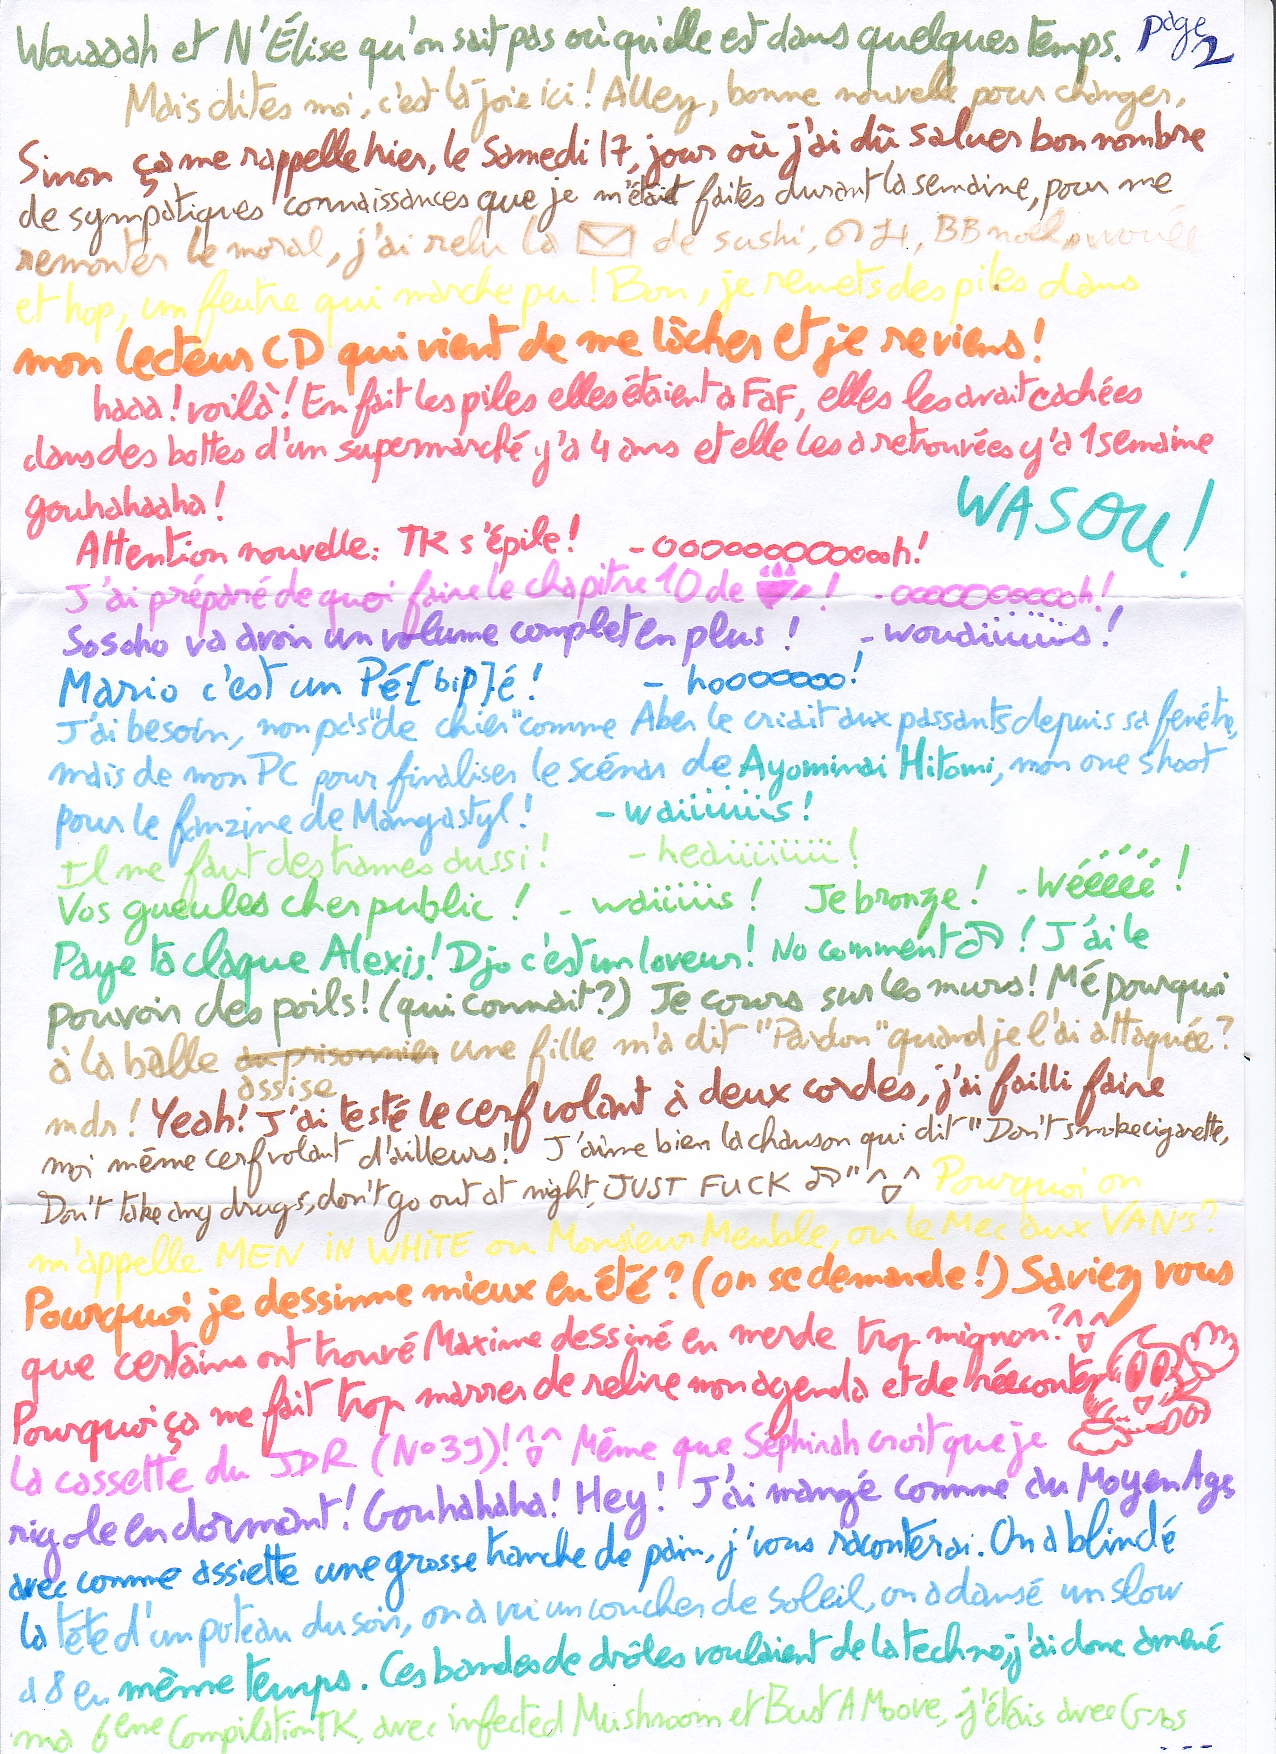 Wouaaah et N'Élise qu'on sait pas où qu'elle est dans quelques temps. page 2
Mais dites moi, c'est la joie ici ! Allez, bonne nouvelle pour changer,
Sinon ça me rappelle hier, le Samedi 17, jour où j'ai dû saluer bon nombre
de sympatiques connaissances que je m'était faites durant la semaine, pour me
remonter le moral, j'ai relu la de sushi, BB noël,
et hop, un feutre qui marche pu ! Bon, je remets des piles dans
mon lecteur CD qui vient de me lâcher et je reviens !
haaa ! voilà ! En fait les piles elles étaient a FaF, elles les avait cachées
dans des bottes d'un supermarché y'a 4 ans et elle les a retrouvées y'a 1 semaine
gouhahaaha !
WASOU !
Attention nouvelle : TK s'épile ! - oooooooooooooh !
J'ai préparé de quoi faire le chapitre 10 de ! - ooooooooooh !
Sosoho va avoir un volume complet en plus ! - wouaiiiiiiis !
Mario c'est un Pé[bip]é ! - hooooooo !
J'ai besoin, non pas "de chier" comme Aber le criait aux passants depuis sa fenêtre,
mais de mon PC pour finaliser le scénar de Ayominai Hitomi, mon one shoot
pour le fanzine de Mangastyl ! - waiiiiiiis !
Il me faut des trames aussi ! - heaiiiiiiii !
Vos gueules cher public ! - waiiiiis ! Je bronze ! - Wéëëëë !
Paye ta claque Alexis ! Djo c'est un loveur ! No comment ♫ ! J'ai le
pouvoir des poils ! (qui connait ?) Je cours sur les murs ! Mé pourquoi
à la balle au prisonnier une fille m'a dit "Pardon" quand je l'ai attaquée ?
assise
mdr ! Yeah ! J'ai testé le cerf volant à deux cordes, j'ai failli faire
moi même cerf volant d'ailleurs ! J'aime bien la chanson qui dit "Don't smoke cigarette,
Don't take any drugs, don't go out at night, JUST FUCK ♫" ^^ Pourquoi on
m'appelle MEN iN WHiTE ou Monsieur Meuble, ou le Mec aux VAN's ?
Pourquoi je dessinne mieux en été ? (on se demande !) Saviez vous
que certains ont trouvé Maxime dessiné en merde trop mignon ? ^^
Pourquoi ça me fait trop marrer de relire mon agenda et de réécouter
la cassette du JDR (N°39) ! ^^ Même que Séphirah croit que je
rigole en dormant ! Gouhahaha ! Hey ! J'ai mangé comme au Moyen Age
avec comme assiette une grosse tranche de pain, j'vous raconterai. On a blindé
la tête d'un poteau du soir, on a vu un coucher de soleil, on a dansé un slow
a 8 en même temps. Ces bandes de drôles voulaient de la techno, j'ai donc amené
ma 6eme Compilation TK, avec infected Mushroom et Bust A Moove, j'étais avec Gros